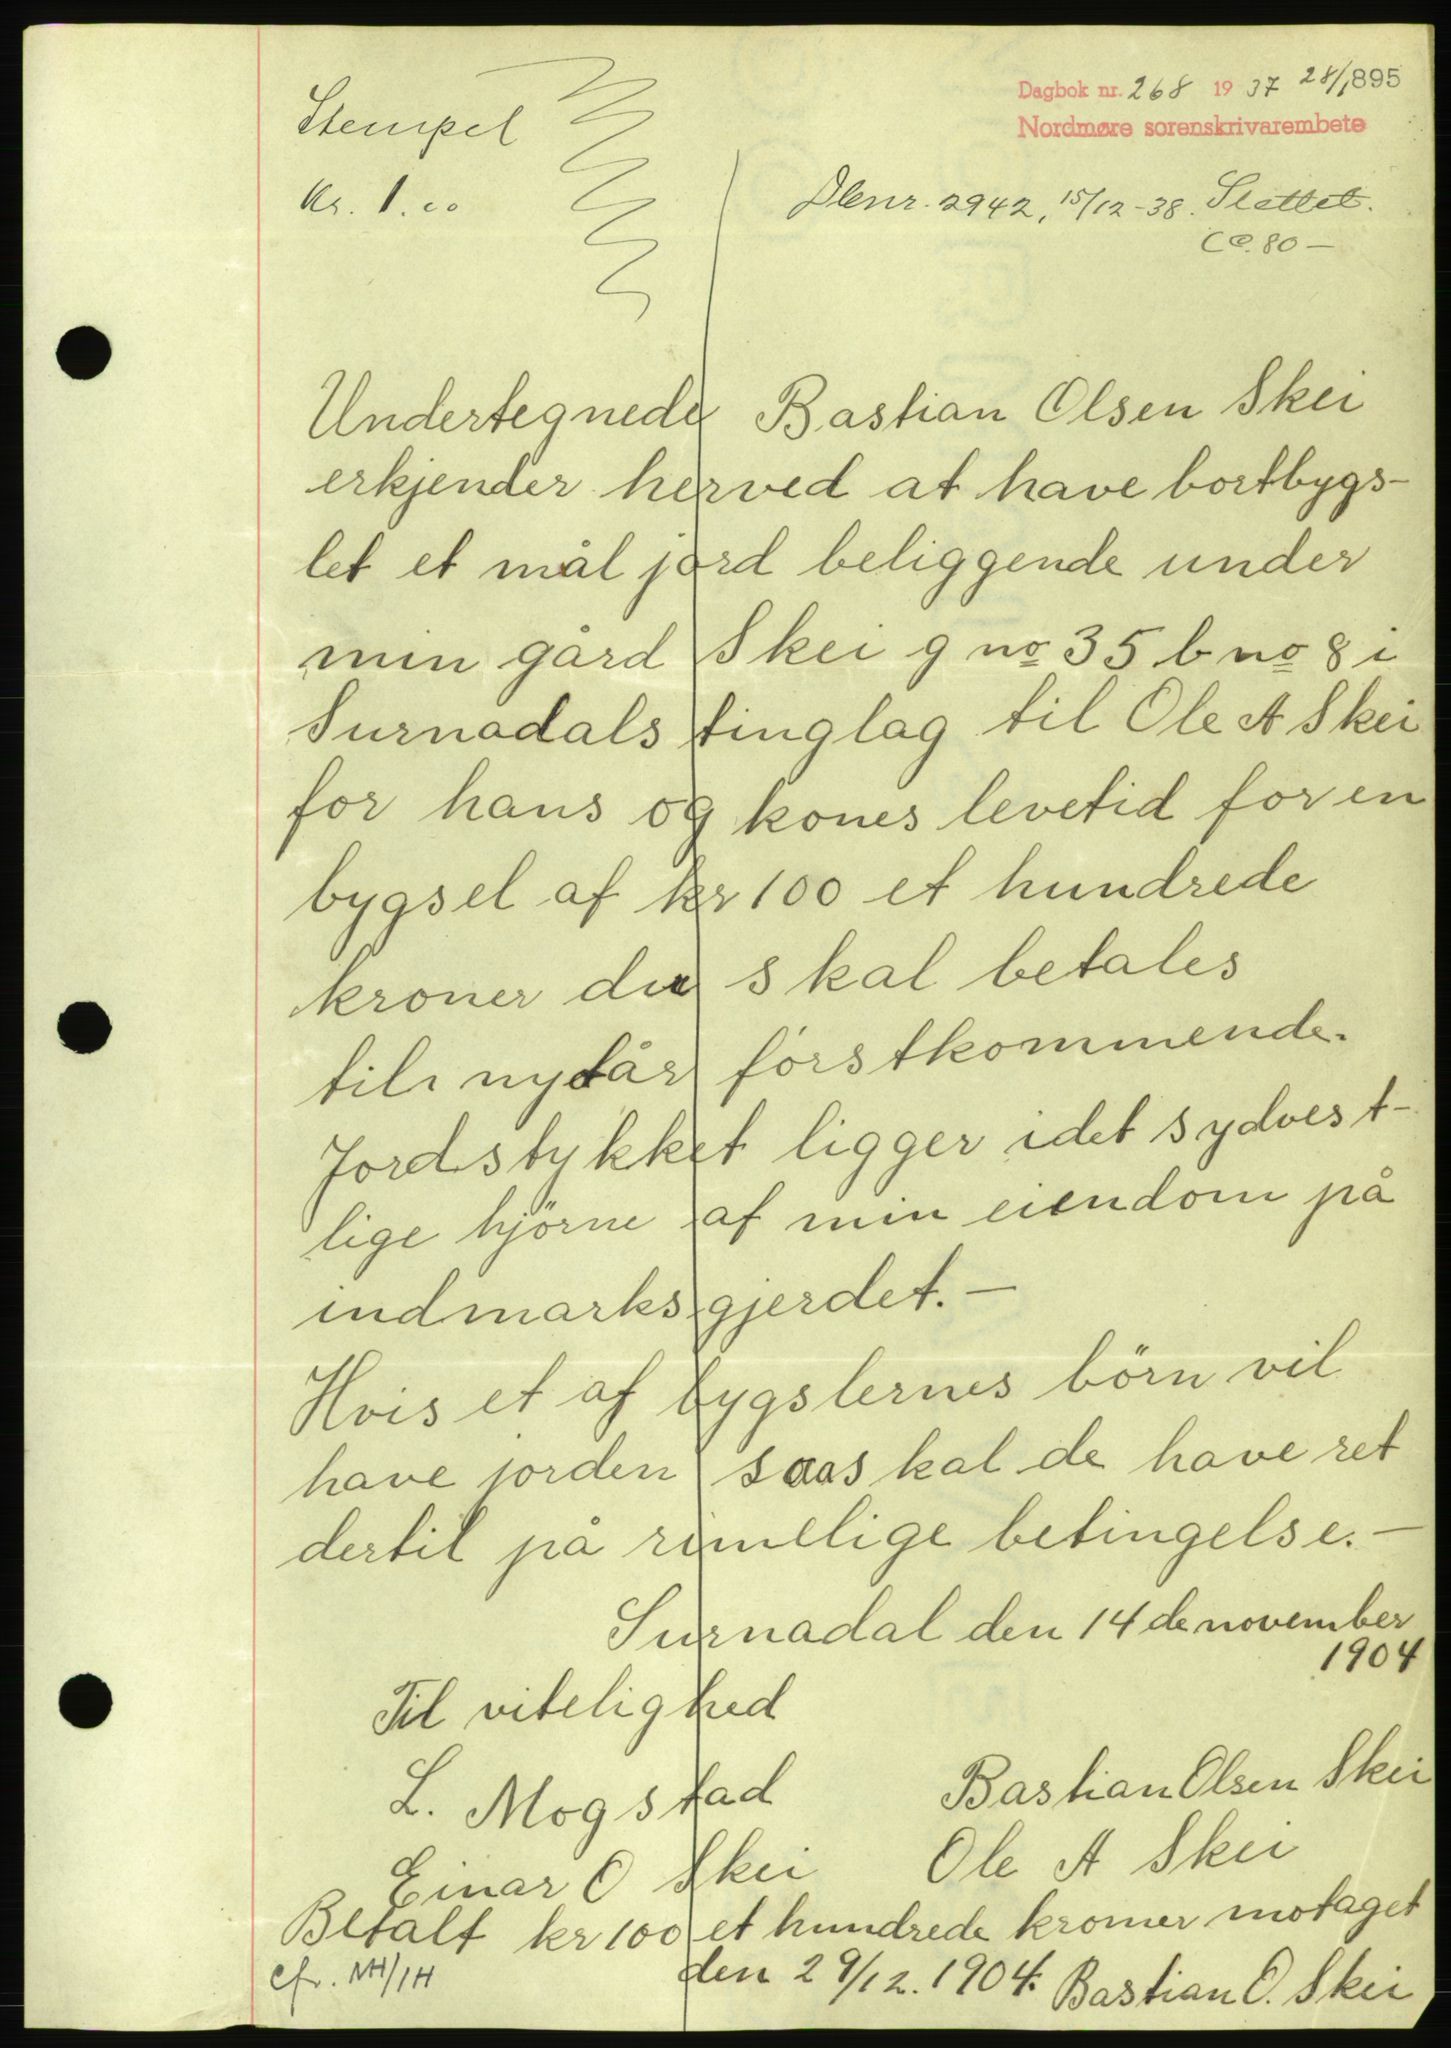 Dagbok nr. 268 1937 28/1 895
Nordmøre sorenskrivarembete
Stempel
Kr. 1.00
Dbnr. 2942, 15/12-38. Slettet.
80 —
Undertegnede Bastian Olsen Skei
erkjender herved at have bortbygs-
let et mål jord beliggende under
min gård Skei g no 35 b no 8 i
Surnadals tinglag til Ole A Skei
for hans og kones levetid for en
bygsel af kr 100 et hundrede
kroner der skal betales
til nytår förstkommende.
Jordstykket ligger i det sydvest-
lige hjörne af min eiendom på
indmarksgjerdet. —
Hvis et af bygslernes börn vil
have jorden saa skal de have ret
dertil på rimelige betingelse. —
Surnadal den 14de november
1904
Til vitelighed
L. Mogstad Bastian Olsen Skei
Einar O Skei Ole A Skei
Betalt kr 100 et hundrede kroner motaget
den 29/12. 1904. Bastian O. Skei
cfr. NH/IH